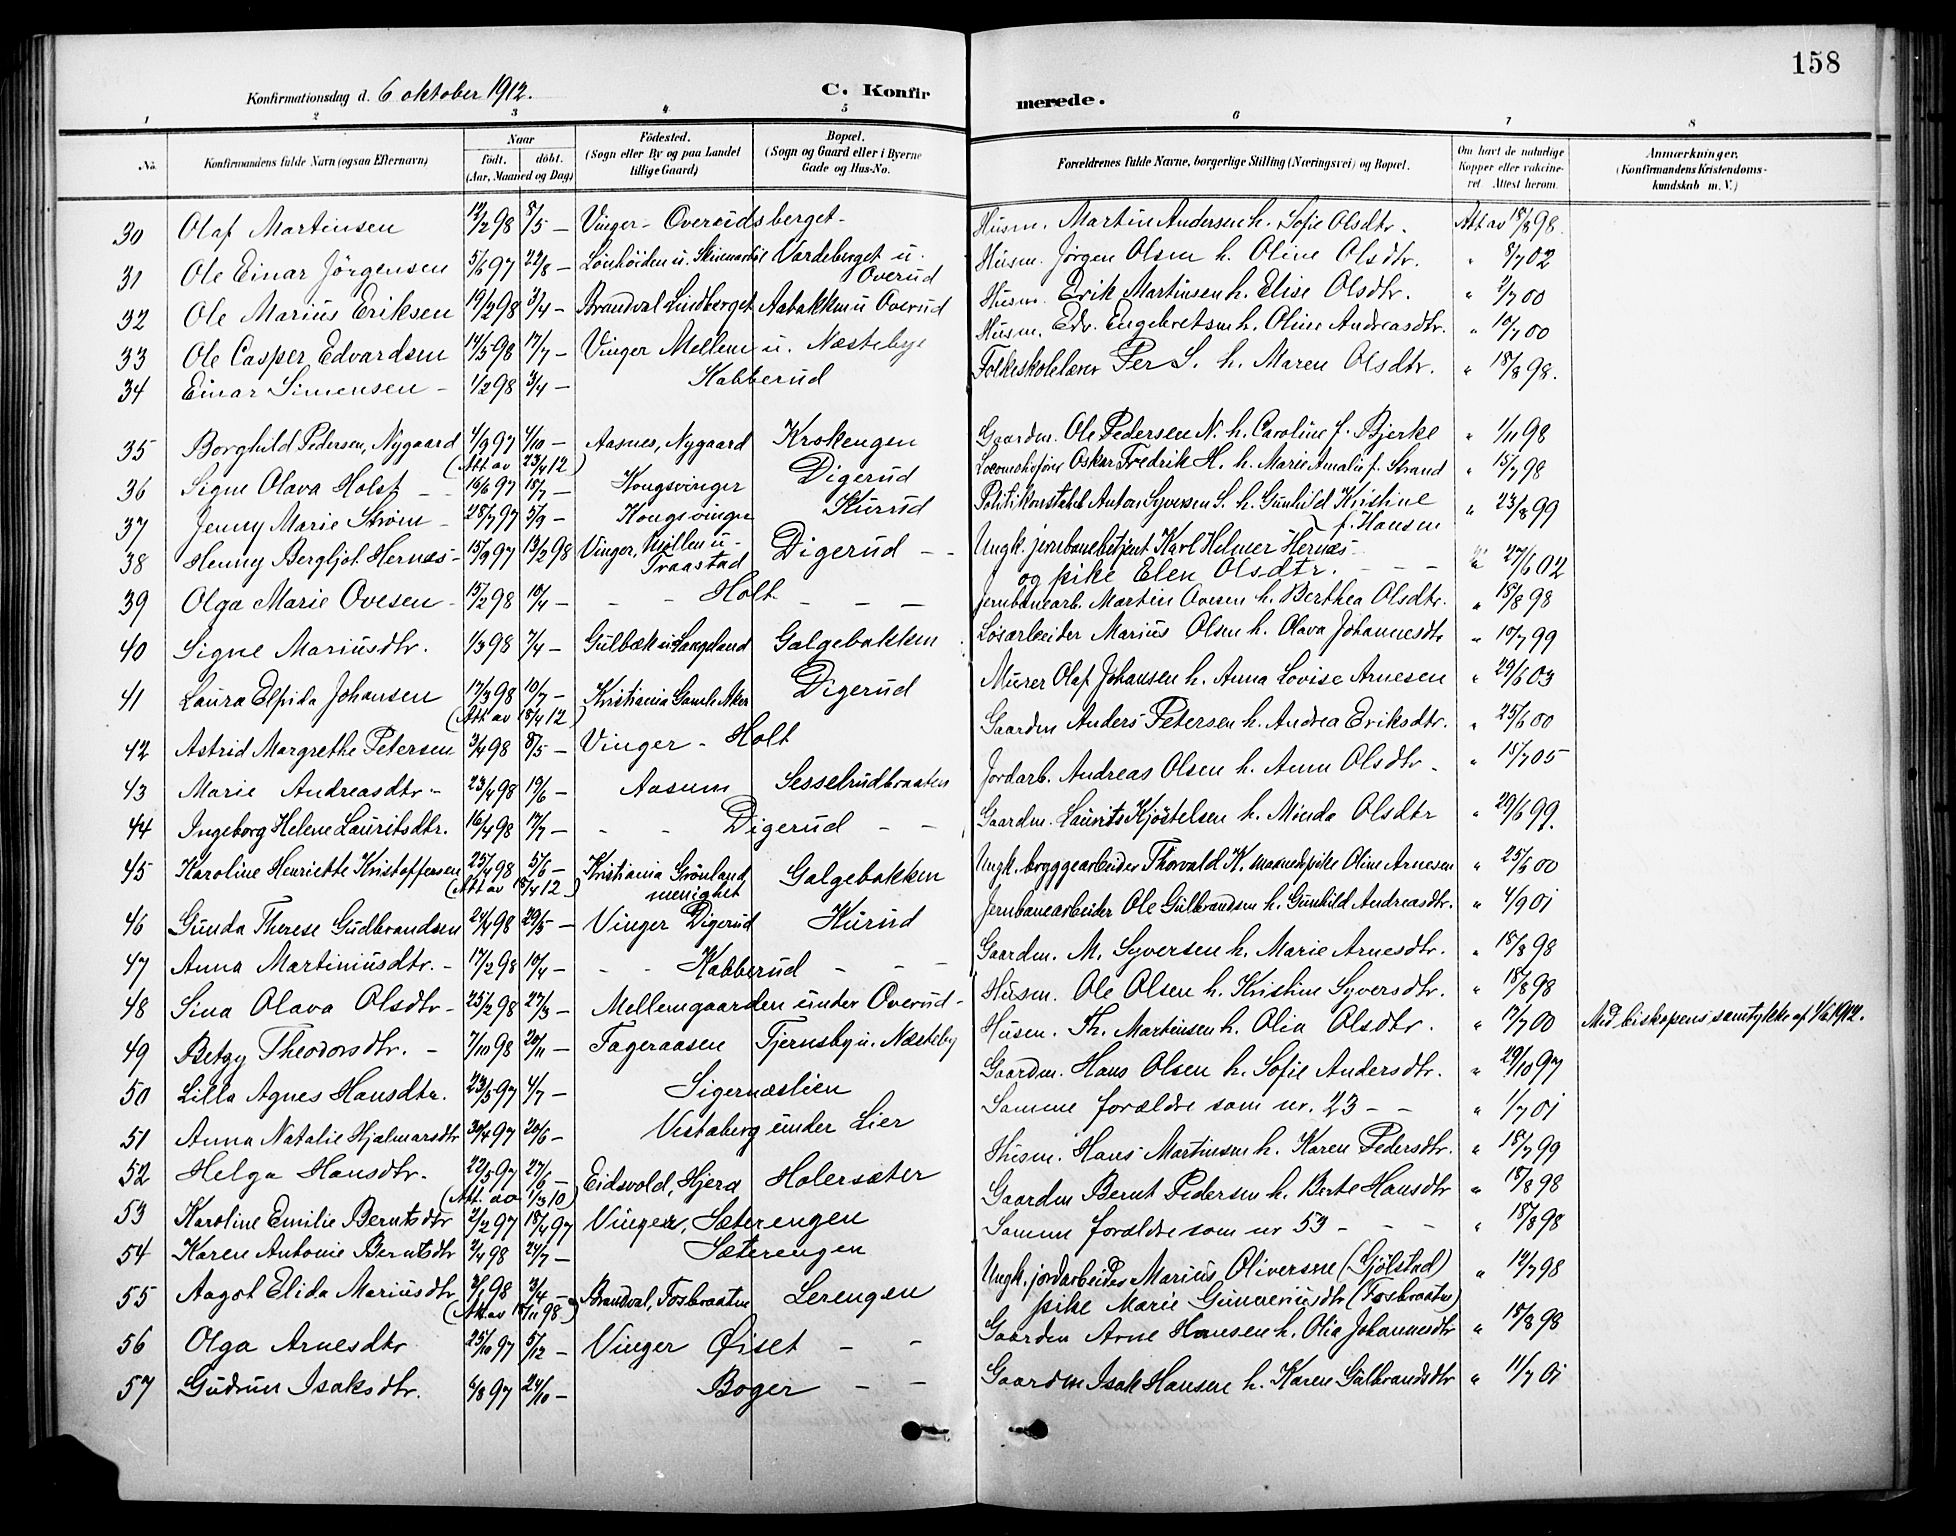 158
Konfirmationsdag d. 6 oktober 1912.
C. Konfirmerede.
1 2 3 4 5 6 7 8
No.
Konfirmandens fulde Navn (ogsaa Efternavn)
Naar
født. døbt.
(Aar, Maaned og Dag)
Fødested.
(Sogn eller By og paa Landet
tillige Gaard)
Bopæl.
(Sogn og Gaard eller i Byerne
Gade og Hus-No.
Forældrenes fulde Navne, borgerlige Stilling (Næringsvei) og Bopæl.
Om havt de naturlige
Kopper eller vakcine-
ret. Attest herom.
Anmærkninger.
(Konfirmandens Kristendoms-
kundskab m. V.)
30 Olaf Martinsen 12/2 98 8/5 — Vinger - Overudsberget - Husm. Martin Andersen h. Sofie Olsdtr. Att av 18/8 98.
31 Ole Einar Jörgensen 5/6 97 22/8 — Lönhöiden u. Vardeberget u. Husm. Jörgen Olsen h. Oline Olsdtr. " 8/7 02
Overud
32 Ole Marius Eriksen 19/2 98 3/4 — Brandval Lindberget Aabakken u Overud Husm. Erik Martinsen h. Elise Olsdtr. " 2/7 00
33 Ole Casper Edvardsen 14/5 98 17/7 — Vinger Mellem u. Næsteby Husm. Edv. Engebretsen h. Oline Andreasdtr. " 10/7 00
34 Einar Simensen - 1/2 98 3/4 — Kabberud Folkeskolelærer Per S. h. Maren Olsdtr. " 18/8 98.
35 Borghild Pedersen, Nygaard 4/9 97 4/10 — Aasnes, Nygaard Krokengen Gaardm. Ole Pedersen N. h. Caroline f. Bjerke " 1/11 98
(Att av 23/4 12)
36 Signe Olava Holst - - 16/6 97 18/7 — Kongsvinger Digerud Locomotivfører Oskar Fredrik H. h. Marie Amalie f. Strand " 15/7 98
37 Jenny Marie Strøm - 28/7 97 5/9 — Kongsvinger Kurud Politikonstabel Anton Syversen S. h. Gunhild Kristine " 23/8 99
f. Hansen
38 Henny Bergljot Hernæs - 15/9 97 13/2 98 Vinger, Millem u - Digerud - - Ungk. jernbanebetjent Karl Helmer Hernæs -
Traastad og pike Elen Olsdtr. - - - " 27/6 02
39 Olga Marie Ovesen - 15/2 98 10/4 — - - Holt - - - Jernbanearb. Martin Ovesen h. Berthea Olsdtr. " 18/8 98
40 Signe Mariusdtr. 1/3 98 7/4 — Gulbæk u Langeland Galgebakken Løsarbeider Marius Olsen h. Olava Johannesdtr " 10/7 99
41 Laura Elpida Johansen 17/3 98 10/7 — Kristiania Gamle Aker Digerud Murer Olaf Johansen h. Anna Lovise Arnesen " 29/6 03
(Att av 18/4 12)
42 Astrid Margrethe Petersen 3/4 98 8/5 — Vinger - Holt Gaardm Anders Petersen h. Andrea Eriksdtr. " 25/6 00
43 Marie Andreasdtr - 23/4 98 19/6 — Aasum Sesselrudbraaten Jordarb. Andreas Olsen h. Anne Olsdtr - " 15/7 05
44 Ingeborg Helene Lauritsdtr. 16/4 98 17/7 — - - Digerud - - Gaardm. Laurits Kjöstelsen h. Minda Olsdtr " 29/6 99.
45 Karoline Henriette Kristoffersen 25/4 98 5/6 — Kristiania Grönland Galgebakken Ungk. bryggearbeider Thorvald K. Oline Arnesen " 25/5 00
(Att av 18/4 12) menighet
46 Gunda Therese Gudbrandsen 24/4 98 29/5 — Vinger Digerud Kurud Jernbanearbeider Ole Gulbrandsen h. Gunhild Andreasdtr. " 4/9 01
47 Anna Martiniusdtr. - 17/2 98 10/4 — - - Kabberud - - - Gaardm. M. Syversen h. Marie Arnesdtr. " 18/8 98
48 Sina Olava Olsdtr - 25/2 98 27/3 — Mellemgaarden under Overud - Husm. Ole Olsen h. Kristine Syversdtr. " 18/8 98
49 Betzy Theodorsdtr. - 7/10 98 20/11 — Fageraasen Tjernsby u. Næsteby Husm. Th. Martinsen h. Olia Olsdtr. " 17/7 00 Med biskopens samtykke af 1/6 1912.
50 Lilla Agnes Hansdtr. 23/5 97 4/7 — Sigernæslien Gaardm. Hans Olsen h. Sofie Andersdtr. " 29/10 97
51 Anna Natalie Hjalmarsdtr 30/4 97 20/6 — Vestaberg under Lier Samme forældre som nr. 23 - - " 1/7 01
52 Helga Hansdtr. 22/5 97 27/6 — Eidsvold, Hjera Holersæter Husm. Hans Martinsen h. Karen Pedersdtr. " 18/7 99
(Att. av 1/3 10)
53 Karoline Emilie Berntsdtr 2/2 97 18/4 97 Vinger, Sæterengen Gaardm Bernt Pedersen h. Berte Hansdtr " 18/8 98
54 Karen Antonie Berntsdtr 2/4 98 24/7 — Sæterengen Samme forældre som nr 53 - - - " 18/8 98
55 Aagot Elida Mariusdtr 3/1 98 3/4 — Brandval, Fosbraaten Lerengen Ungk. jordarbeider Marius Oliversen (Gjölstad) " 12/7 98
(Att av 18/11 98) pike Marie Gunneriusdtr (Fosbraaten)
56 Olga Arnesdtr 25/10 97 5/12 — Vinger Öiset - - Gaardm Arne Hansen h. Olia Johannesdtr " 18/8 98
57 Gudrun Isaksdtr. 6/8 97 24/10 — Boger - - Gaardm Isak Hansen h. Karen Gulbrandsdtr " 11/7 01